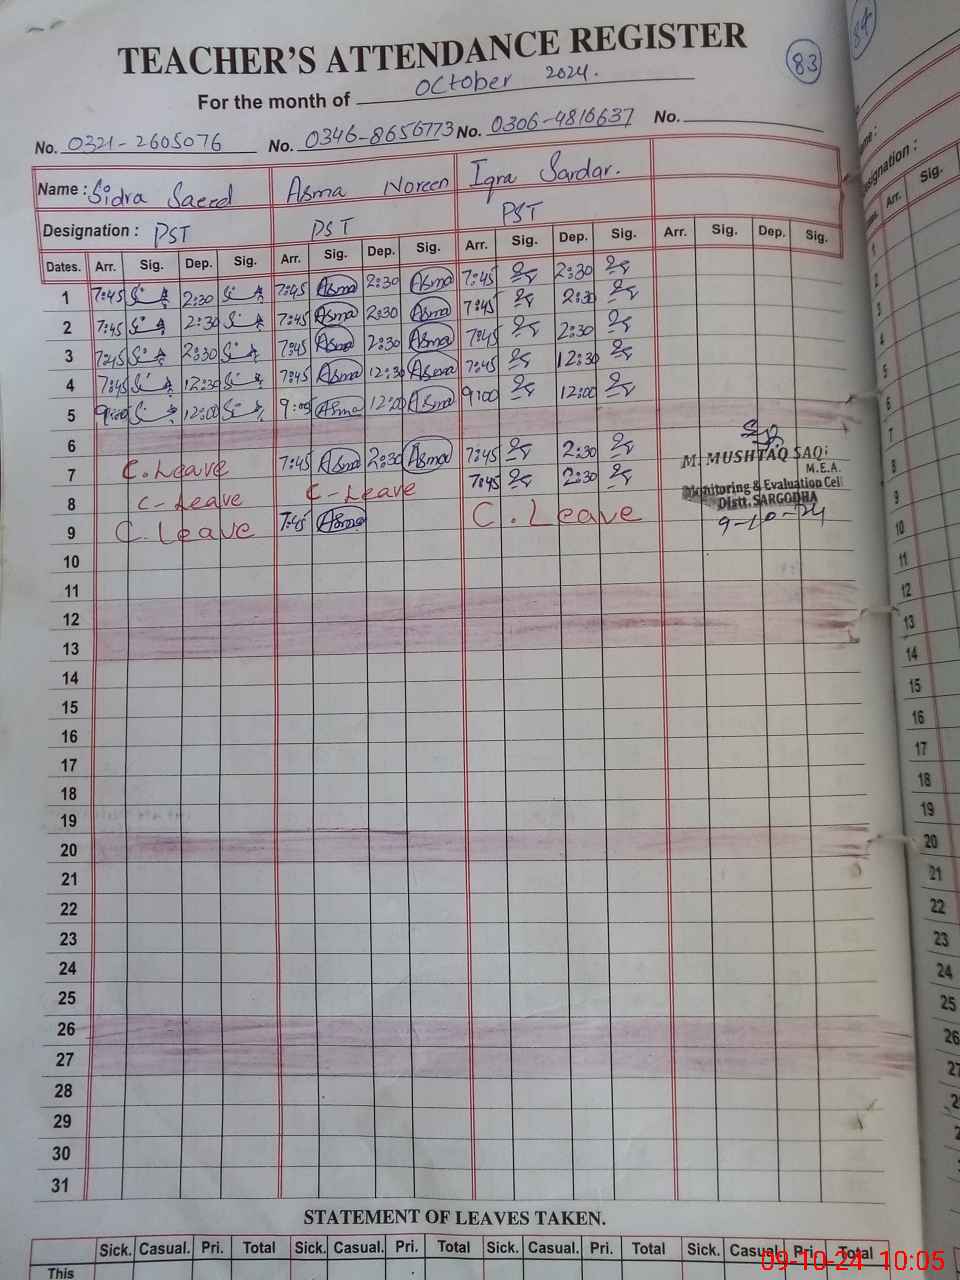 84
TEACHER'S ATTENDANCE REGISTER
83
For the month of October 2024.
No. 0321-2605076 No. 0346-8656773 No. 0306-4816637 No.
Name : Sidra Saeed Asma Noreen Iqra Sardar.
Designation : PST PST PST
Dates. Arr. Sig. Dep. Sig. Arr. Sig. Dep. Sig. Arr. Sig. Dep. Sig. Arr. Sig. Dep. Sig.
1 7:45 2:30 7:45 Asma 2:30 Asma 7:45 2:30
2 7:45 2:30 7:45 Asma 2:30 Asma 7:45 2:30
3 7:45 2:30 7:45 Asma 2:30 Asma 7:45 2:30
4 7:45 12:30 7:45 Asma 12:30 Asma 7:45 12:30
5 9:00 12:00 9:00 Asma 12:00 Asma 9:00 12:00
6
7 C. Leave 7:45 Asma 2:30 Asma 7:45 2:30
8 C- Leave C- Leave 7:45 2:30
9 C. Leave 7:45 Asma C. Leave
M. MUSHTAQ SAQI
M.E.A.
Monitoring & Evaluation Cell
Distt. SARGODHA
9-10-24
10
11
12
13
14
15
16
17
18
19
20
21
22
23
24
25
26
27
28
29
30
31
STATEMENT OF LEAVES TAKEN.
Sick. Casual. Pri. Total Sick. Casual. Pri. Total Sick. Casual. Pri. Total Sick. Casual. Pri. Total
This
09-10-24 10:05
Designation :
Arr. Sig.
1
2
3
4
5
6
7
8
9
10
11
12
13
14
15
16
17
18
19
20
21
22
23
24
25
26
27